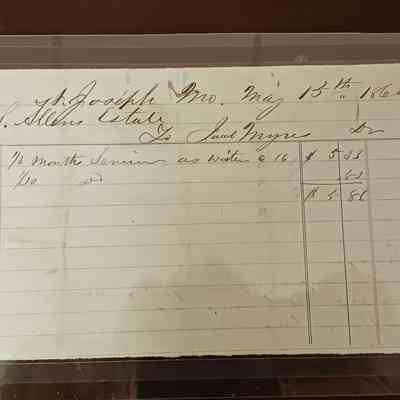 St. Joseph Mo. May 15th 186
Allens Estate
To Saml Myre Dr
Months Services as 16 $ 5 33
Do do 53
$ 5 86